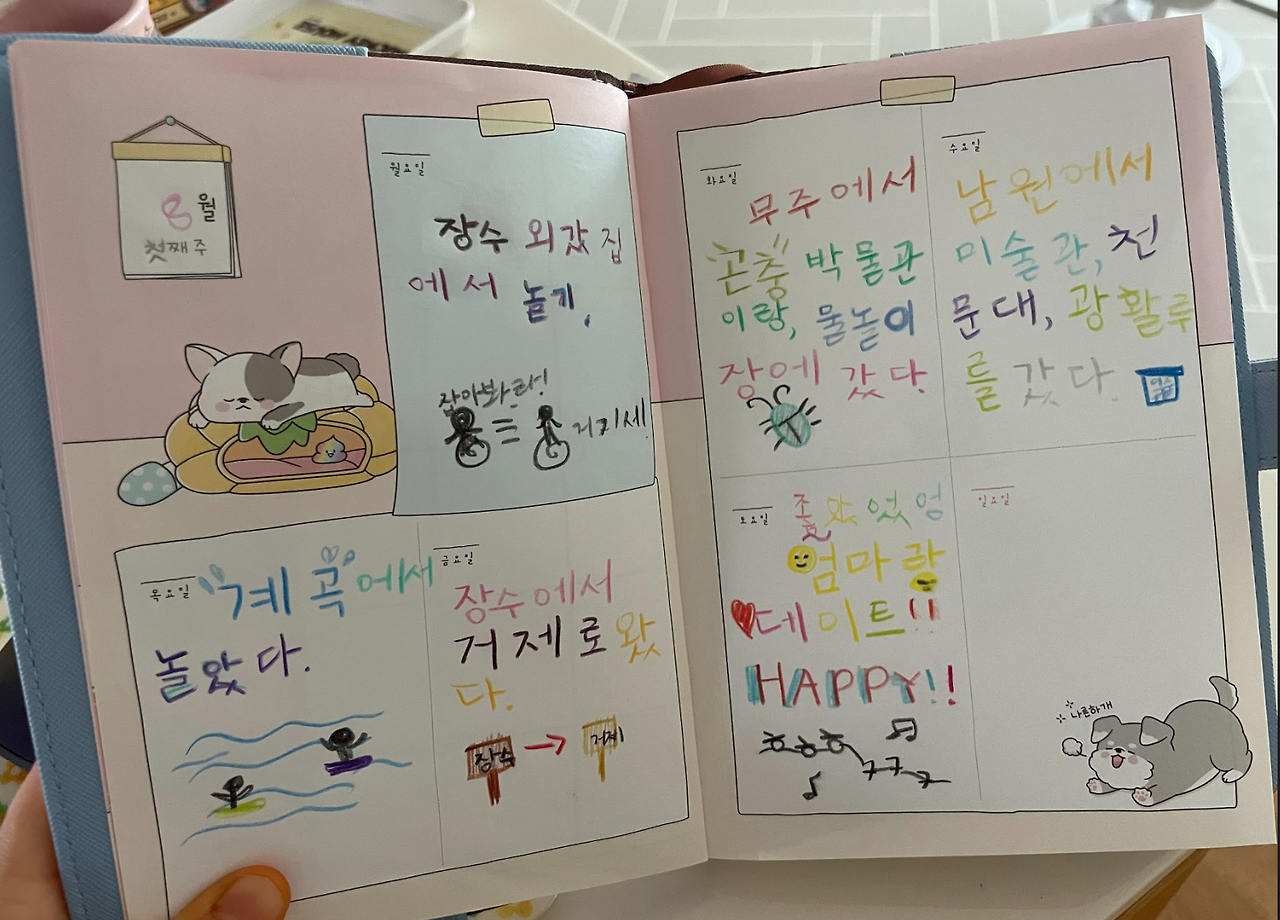 8월
첫째 주
월요일
장수 외갔 집
에서 놀기,
잡아봐라!
거기세!
화요일
무주에서
곤충 박물관
이랑, 물놀이
장에 갔다.
수요일
남원에서
미술관, 천
문대, 광활루
를 갔다.
목요일
계곡에서
놀았다.
금요일
장수에서
거제로 왔
다.
장수
거제
토요일
좋았었엉
엄마랑
데이트!!
HAPPY!!
일요일
나른하개